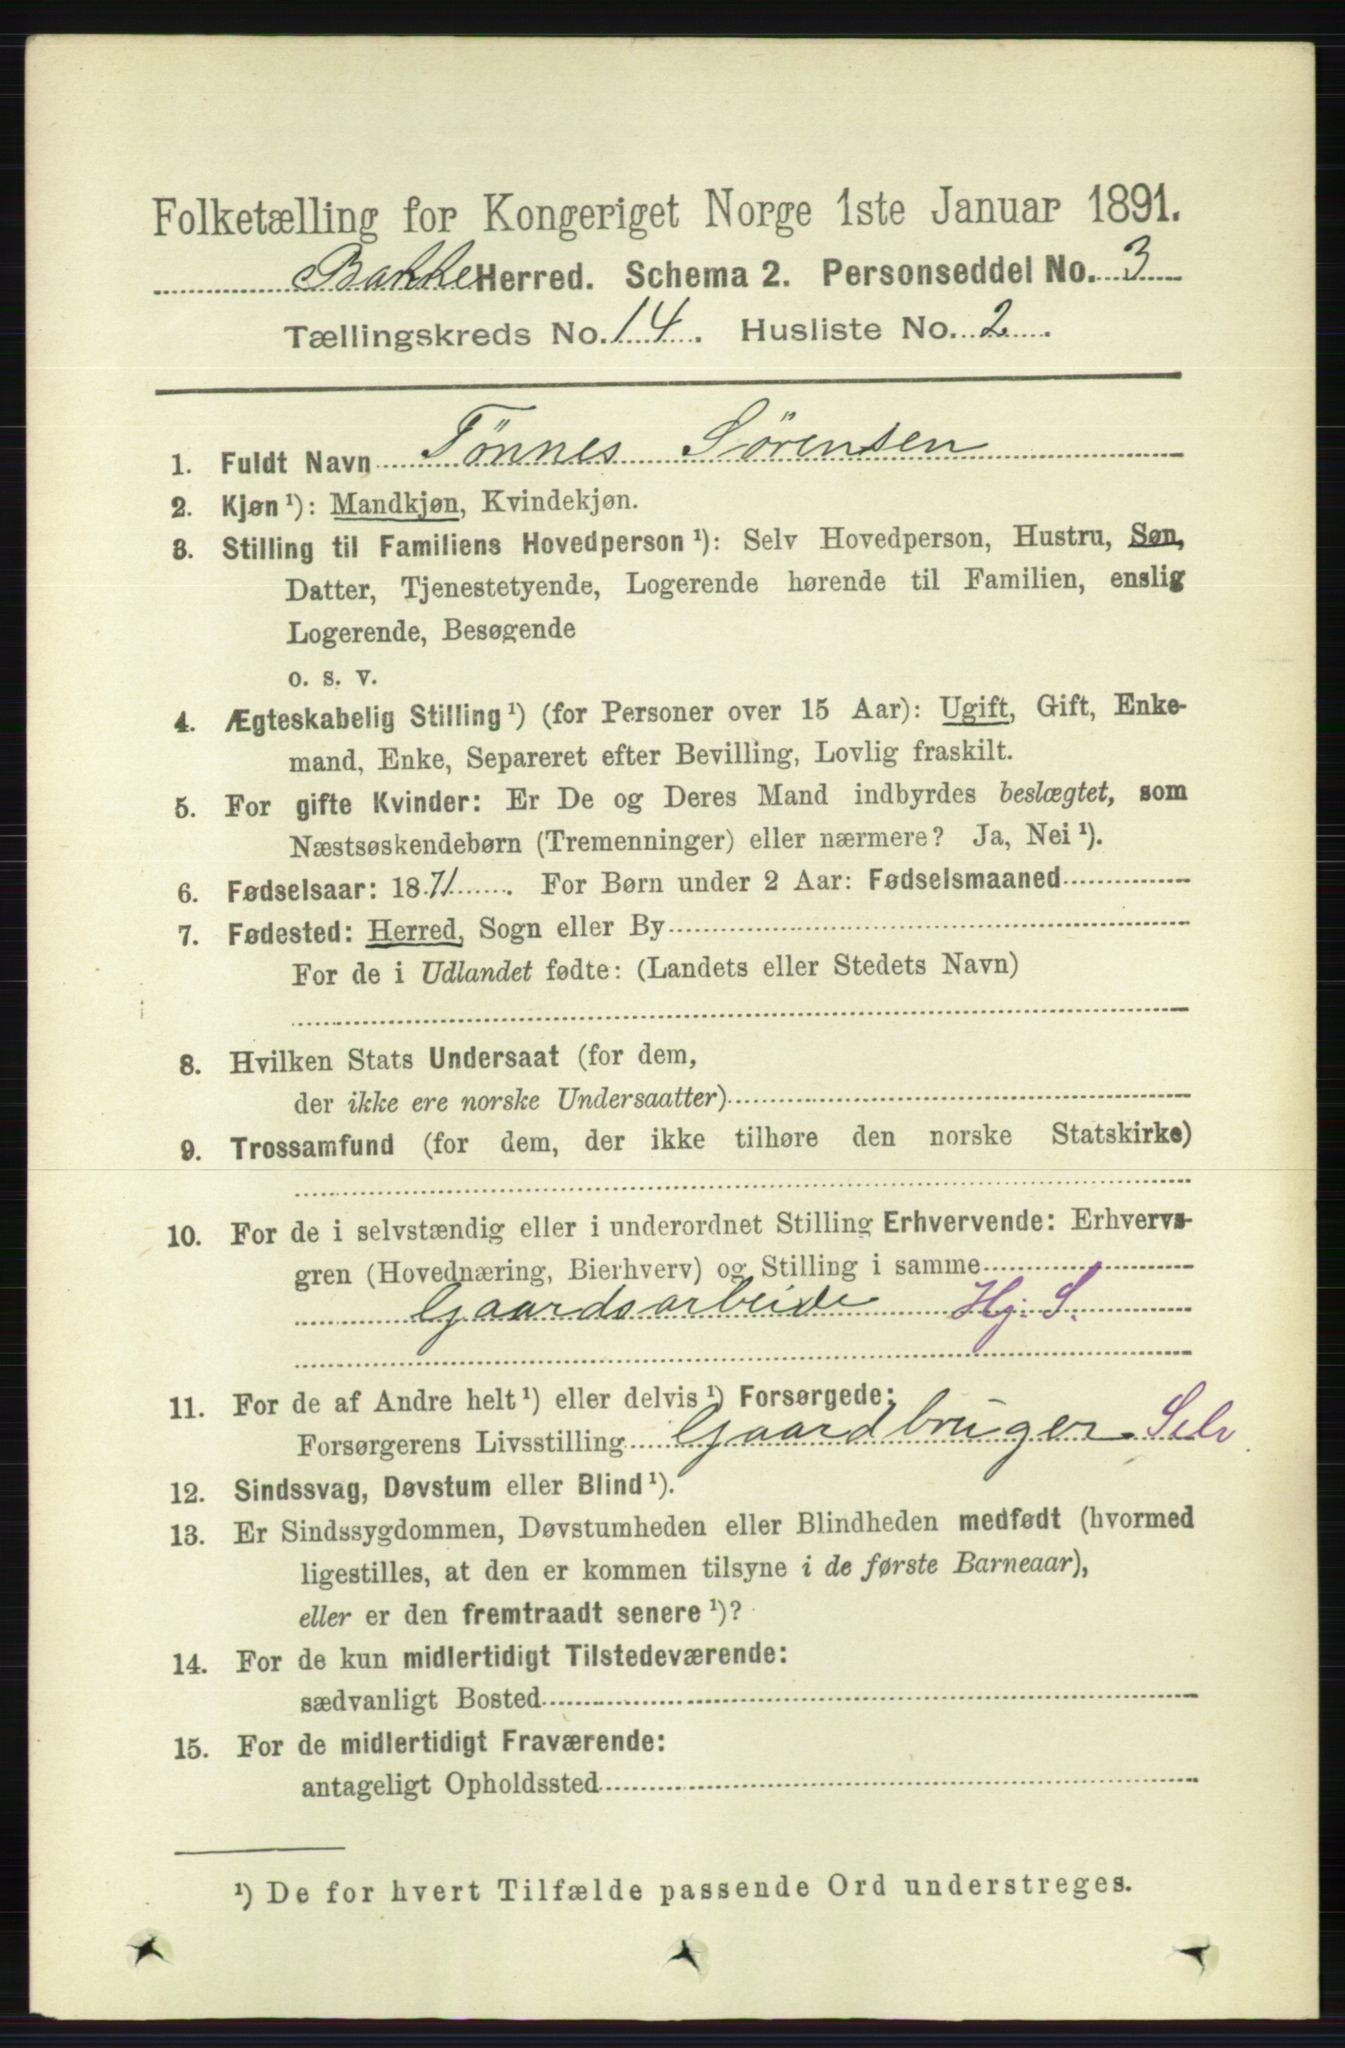 Folketælling for Kongeriget Norge 1ste Januar 1891.
Bakke Herred. Schema 2. Personseddel No. 3
Tællingskreds No. 14. Husliste No. 2.
1. Fuldt Navn Tønnes Sørensen
2. Kjøn ¹): Mandkjøn, Kvindekjøn.
3. Stilling til Familiens Hovedperson ¹): Selv Hovedperson, Hustru, Søn,
Datter, Tjenestetyende, Logerende hørende til Familien, enslig
Logerende, Besøgende
o. s. v.
4. Ægteskabelig Stilling ¹) (for Personer over 15 Aar): Ugift, Gift, Enke-
mand, Enke, Separeret efter Bevilling, Lovlig fraskilt.
5. For gifte Kvinder: Er De og Deres Mand indbyrdes beslægtet, som
Næstsøskendebørn (Tremenninger) eller nærmere? Ja, Nei ¹).
6. Fødselsaar: 1871. For Børn under 2 Aar: Fødselsmaaned
7. Fødested: Herred, Sogn eller By
For de i Udlandet fødte: (Landets eller Stedets Navn)
8. Hvilken Stats Undersaat (for dem,
der ikke ere norske Undersaatter)
9. Trossamfund (for dem, der ikke tilhøre den norske Statskirke)
10. For de i selvstændig eller i underordnet Stilling Erhvervende: Erhvervs-
gren (Hovednæring, Bierhverv) og Stilling i samme
Gaardsarbeide Hj: S.
11. For de af Andre helt ¹) eller delvis ¹) Forsørgede:
Forsørgerens Livsstilling Gaardbruger Selv
12. Sindssvag, Døvstum eller Blind ¹).
13. Er Sindssygdommen, Døvstumheden eller Blindheden medfødt (hvormed
ligestilles, at den er kommen tilsyne i de første Barneaar),
eller er den fremtraadt senere ¹)?
14. For de kun midlertidigt Tilstedeværende:
sædvanligt Bosted
15. For de midlertidigt Fraværende:
antageligt Opholdssted
¹) De for hvert Tilfælde passende Ord understreges.